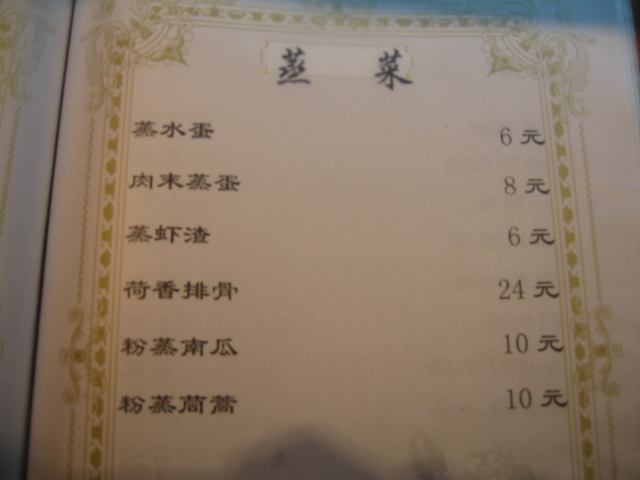 蒸 菜
蒸水蛋 6元
肉末蒸蛋 8元
蒸虾渣 6元
荷香排骨 24元
粉蒸南瓜 10元
粉蒸茼蒿 10元